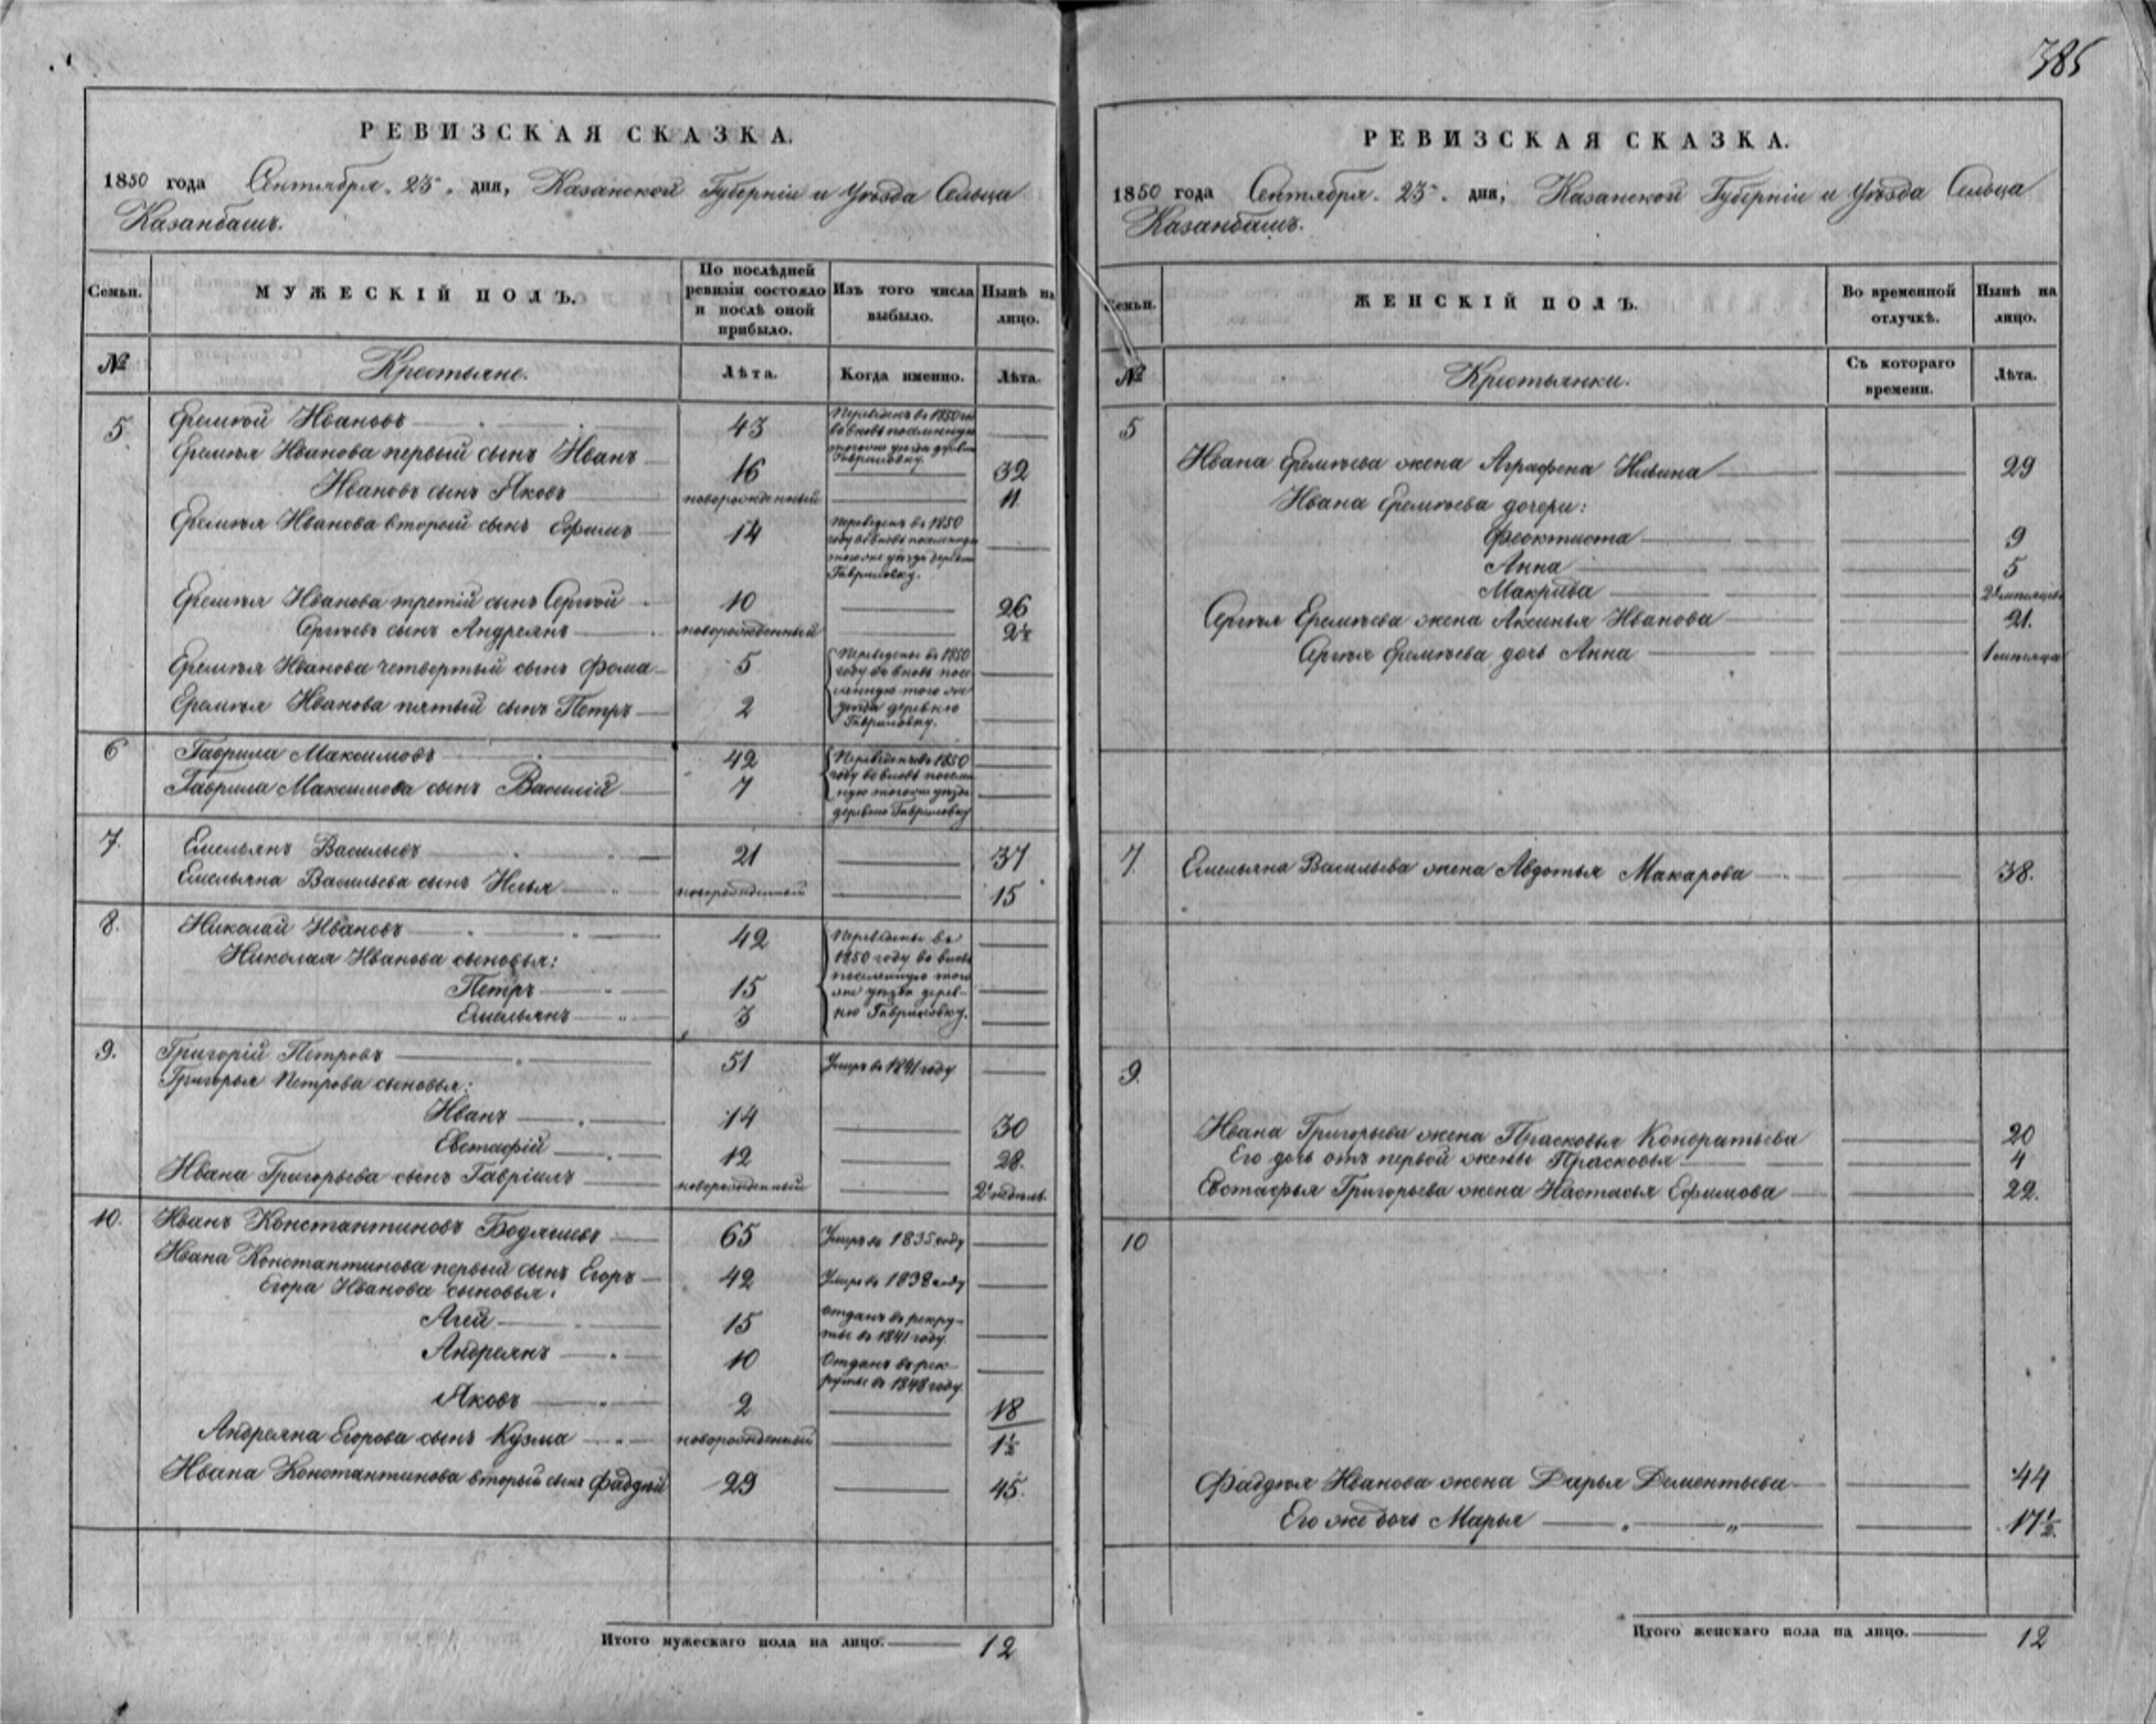 385
РЕВИЗСКАЯ СКАЗКА.
1850 года Сентября 23 дня, Казанской Губерніи и Уѣзда Сельца
Казанбашъ.
Семьи.
МУЖЕСКІЙ ПОЛЪ.
По послѣдней
ревизіи состояло
и послѣ оной
прибыло.
Изъ того числа
выбыло.
Нынѣ на
лицо.
№
Крестьяне.
Лѣта.
Когда именно.
Лѣта.
5. Еремѣй Ивановъ 43 Переведенъ въ 1850 го
во вновь поселенную
тогоже уѣзда деревню
Гавриловку.
Еремѣя Иванова первый сынъ Иванъ 16 32
Ивановъ сынъ Яковъ новорожденный 11
Еремѣя Иванова второй сынъ Ефимъ 14 Переведенъ въ 1850
году во вновь поселенную
тогоже уѣзда деревню
Гавриловку.
Еремѣя Иванова третій сынъ Сергѣй 10 26
Сергѣевъ сынъ Андреянъ новорожденный 2½
Еремѣя Иванова четвертый сынъ Фома 5 Переведены въ 1850
году во вновь посе
ленную того же
Еремѣя Иванова пятый сынъ Петръ 2 уѣзда деревню
Гавриловку.
6 Гаврила Максимовъ 42 Переведены въ 1850
году во вновь поселен
Гаврила Максимова сынъ Василій 7 ную тогоже уѣзда
деревню Гавриловку
7. Емельянъ Васильевъ 21 37
Емельяна Васильева сынъ Илья новорожденный 15
8. Николай Ивановъ 42 Переведены въ
Николая Иванова сыновья: 1850 году во вновь
поселенную того
Петръ 15 же уѣзда дерев-
Емельянъ 3 ню Гавриловку.
9. Григорій Петровъ 51 Умеръ въ 1841 году
Григорья Петрова сыновья:
Иванъ 14 30
Евстафій 12 28.
Ивана Григорьева сынъ Гавріилъ новорожденный 2 недѣль.
10. Иванъ Константиновъ Бодяшевъ 65 Умеръ въ 1835 году
Ивана Константинова первый сынъ Егоръ 42 Умеръ въ 1838 году
Егора Иванова сыновья:
Агей 15 Отданъ въ рекру-
ты въ 1841 году.
Андреянъ 10 Отданъ въ рек-
руты въ 1848 году.
Яковъ 2 18
Андреяна Егорова сынъ Кузма новорожденный 1½
Ивана Константинова вторый сынъ Фаддѣй 29 45.
Итого мужескаго пола на лицо. 12
РЕВИЗСКАЯ СКАЗКА.
1850 года Сентября 23 дня, Казанской Губерніи и Уѣзда Сельца
Казанбашъ.
Семьи.
ЖЕНСКІЙ ПОЛЪ.
Во временной
отлучкѣ.
Нынѣ на
лицо.
№
Крестьянки.
Съ котораго
времени.
Лѣта.
5
Ивана Еремѣева жена Аграфена Ильина 29
Ивана Еремѣева дочери:
Феоктиста 9
Анна 5
Макрида
Сергѣя Еремѣева жена Аксинья Иванова 21.
Сергѣя Еремѣева дочь Анна 1 мѣсяца
7. Емельяна Васильева жена Авдотья Макарова 38.
9.
Ивана Григорьева жена Прасковья Кондратьева 20
Его дочь отъ первой жены Прасковья 4
Евстафья Григорьева жена Настасья Ефимова 22.
10
Фаддѣя Иванова жена Дарья Дементьева 44
Его же дочь Марья 17½.
Итого женскаго пола на лицо. 12